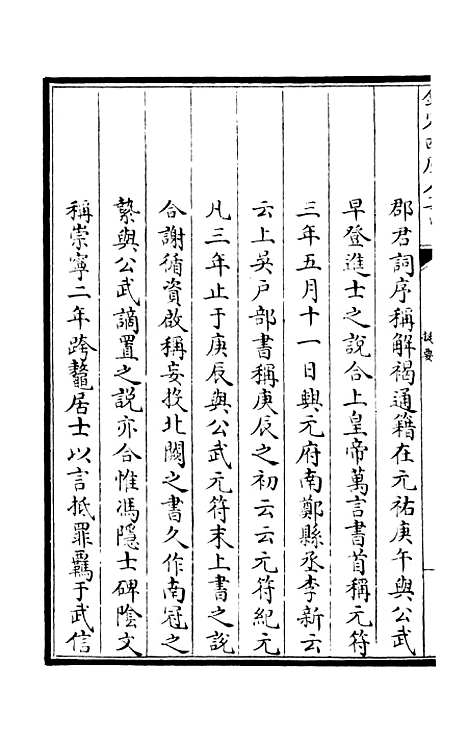 郡君詞序稱解褐通籍在元祐庚午與公武
早登進士之說合上皇帝萬言書首稱元符
三年五月十一日興元府南鄭縣丞李新云
云上吳戶部書稱庚辰之初云云元符紀元
凡三年止于庚辰與公武元符末上書之說
合謝循資啟稱妄投北闕之書久作南冠之
縶與公武謫置之說亦合惟馮隱士碑陰文
稱崇寧二年跨鼇居士以言抵罪羈于武信